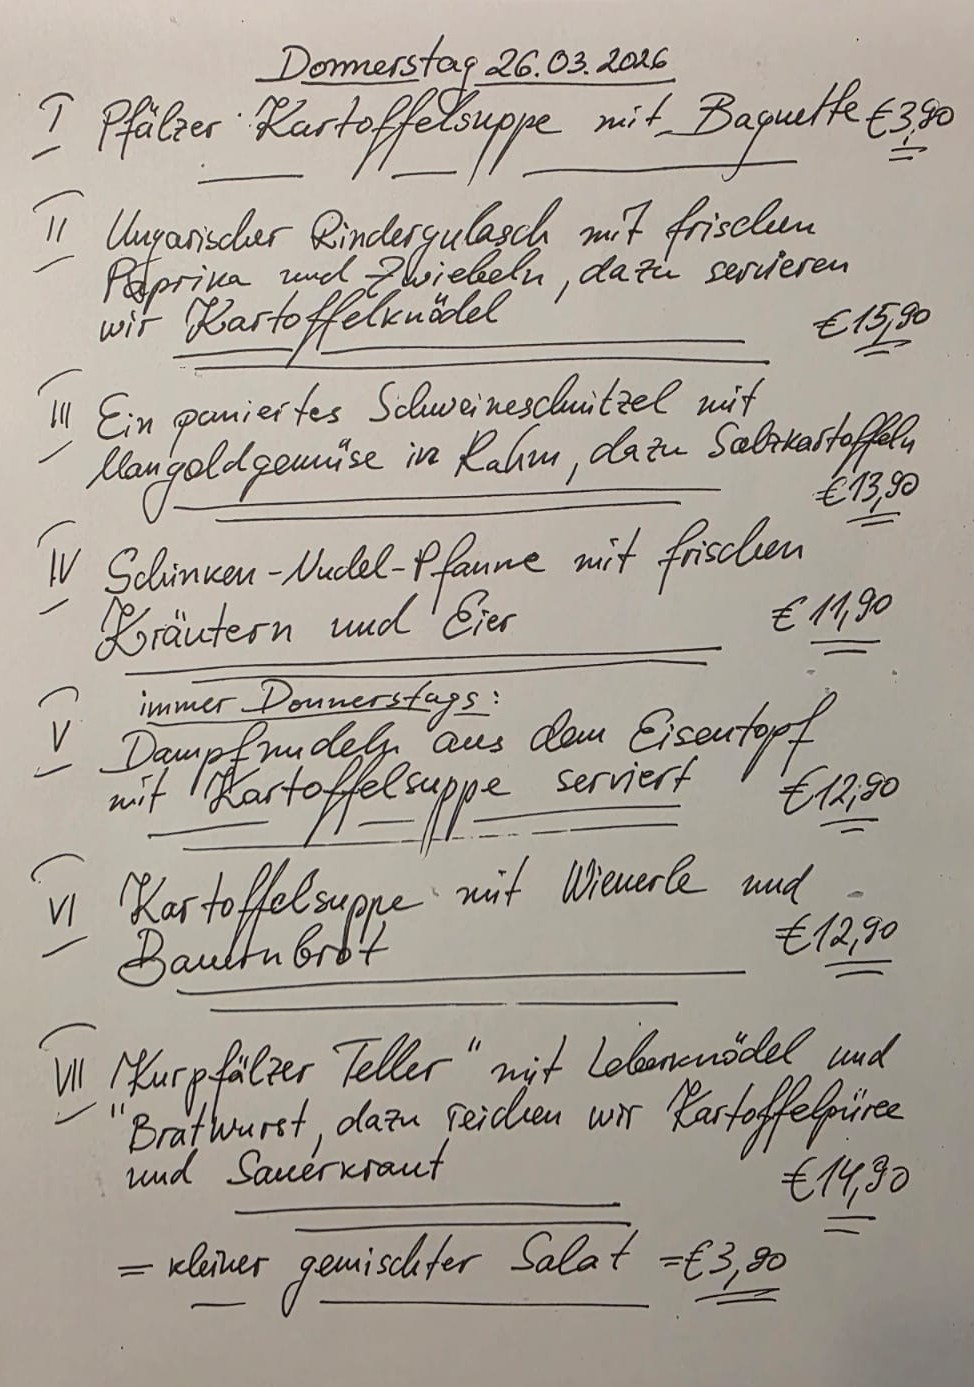 Donnerstag 26.03.2026
I Pfälzer Kartoffelsuppe mit Baguette €3,90
II Ungarischer Rindergulasch mit frischen
Paprika und Zwiebeln, dazu servieren
wir Kartoffelknödel
€15,90
III Ein paniertes Schweineschnitzel mit
Mangoldgemüse in Rahm, dazu Salzkartoffeln
€13,90
IV Schinken-Nudel-Pfanne mit frischen
Kräutern und Eier €11,90
immer Donnerstags:
V Dampfnudeln aus dem Eisentopf
mit Kartoffelsuppe serviert €12,90
VI Kartoffelsuppe mit Wienerle und
Bauernbrot €12,90
VII "Kurpfälzer Teller" mit Leberknödel und
Bratwurst, dazu reichen wir Kartoffelpüree
und Sauerkraut €14,90
= kleiner gemischter Salat = €3,90